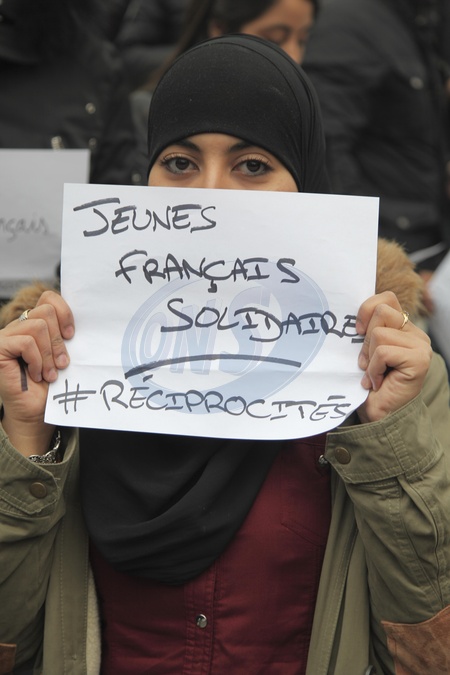 JEUNES
FRANÇAIS
SOLIDAIRE
#RÉCIPROCITÉS
ONS
nçais